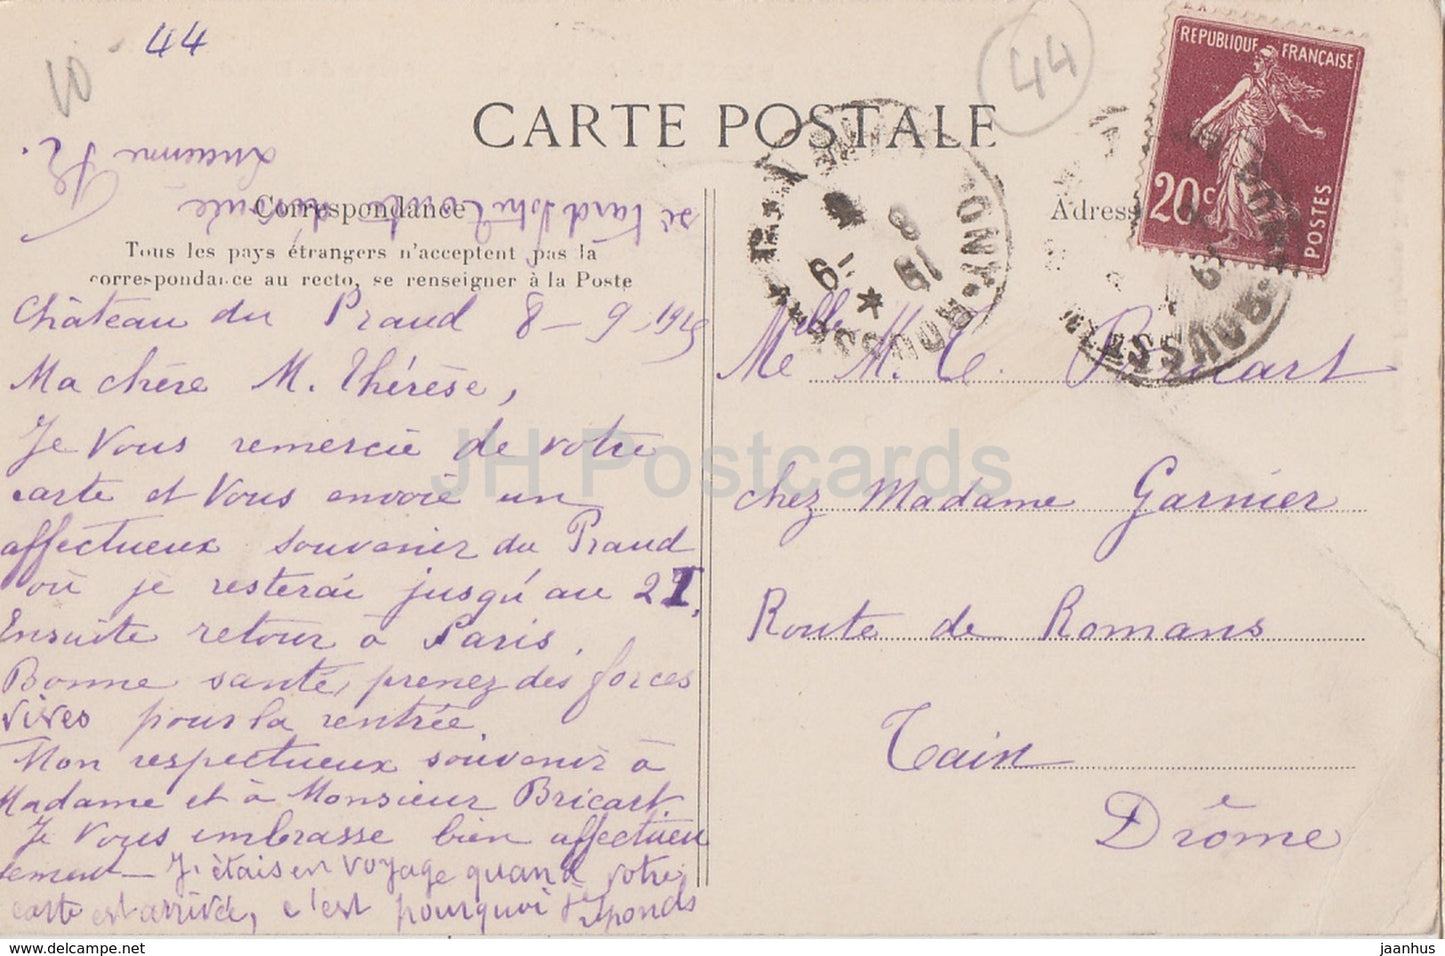 44
10
44
CARTE POSTALE
REPUBLIQUE FRANÇAISE
20c
POSTES
Correspondance
Adresse
Tous les pays étrangers n'acceptent pas la
correspondance au recto, se renseigner à la Poste
Château du Praud 8-9-19
Ma chère M. Thérèse,
Je vous remercie de votre
carte et vous envoie un
affectueux souvenir du Praud
où je resterai jusqu'au 21.
Ensuite retour à Paris.
Bonne santé, prenez des forces
vives pour la rentrée.
Mon respectueux souvenir à
Madame et à Monsieur Bricart
Je vous embrasse bien affectueu
sement — J'étais en voyage quand votre
carte est arrivée, c'est pourquoi je réponds
si tard
Lucienne
Melle M. T. Bricart
chez Madame Garnier
Route de Romans
Tain
Drôme
JH Postcards
www.delcampe.net
jaanhus